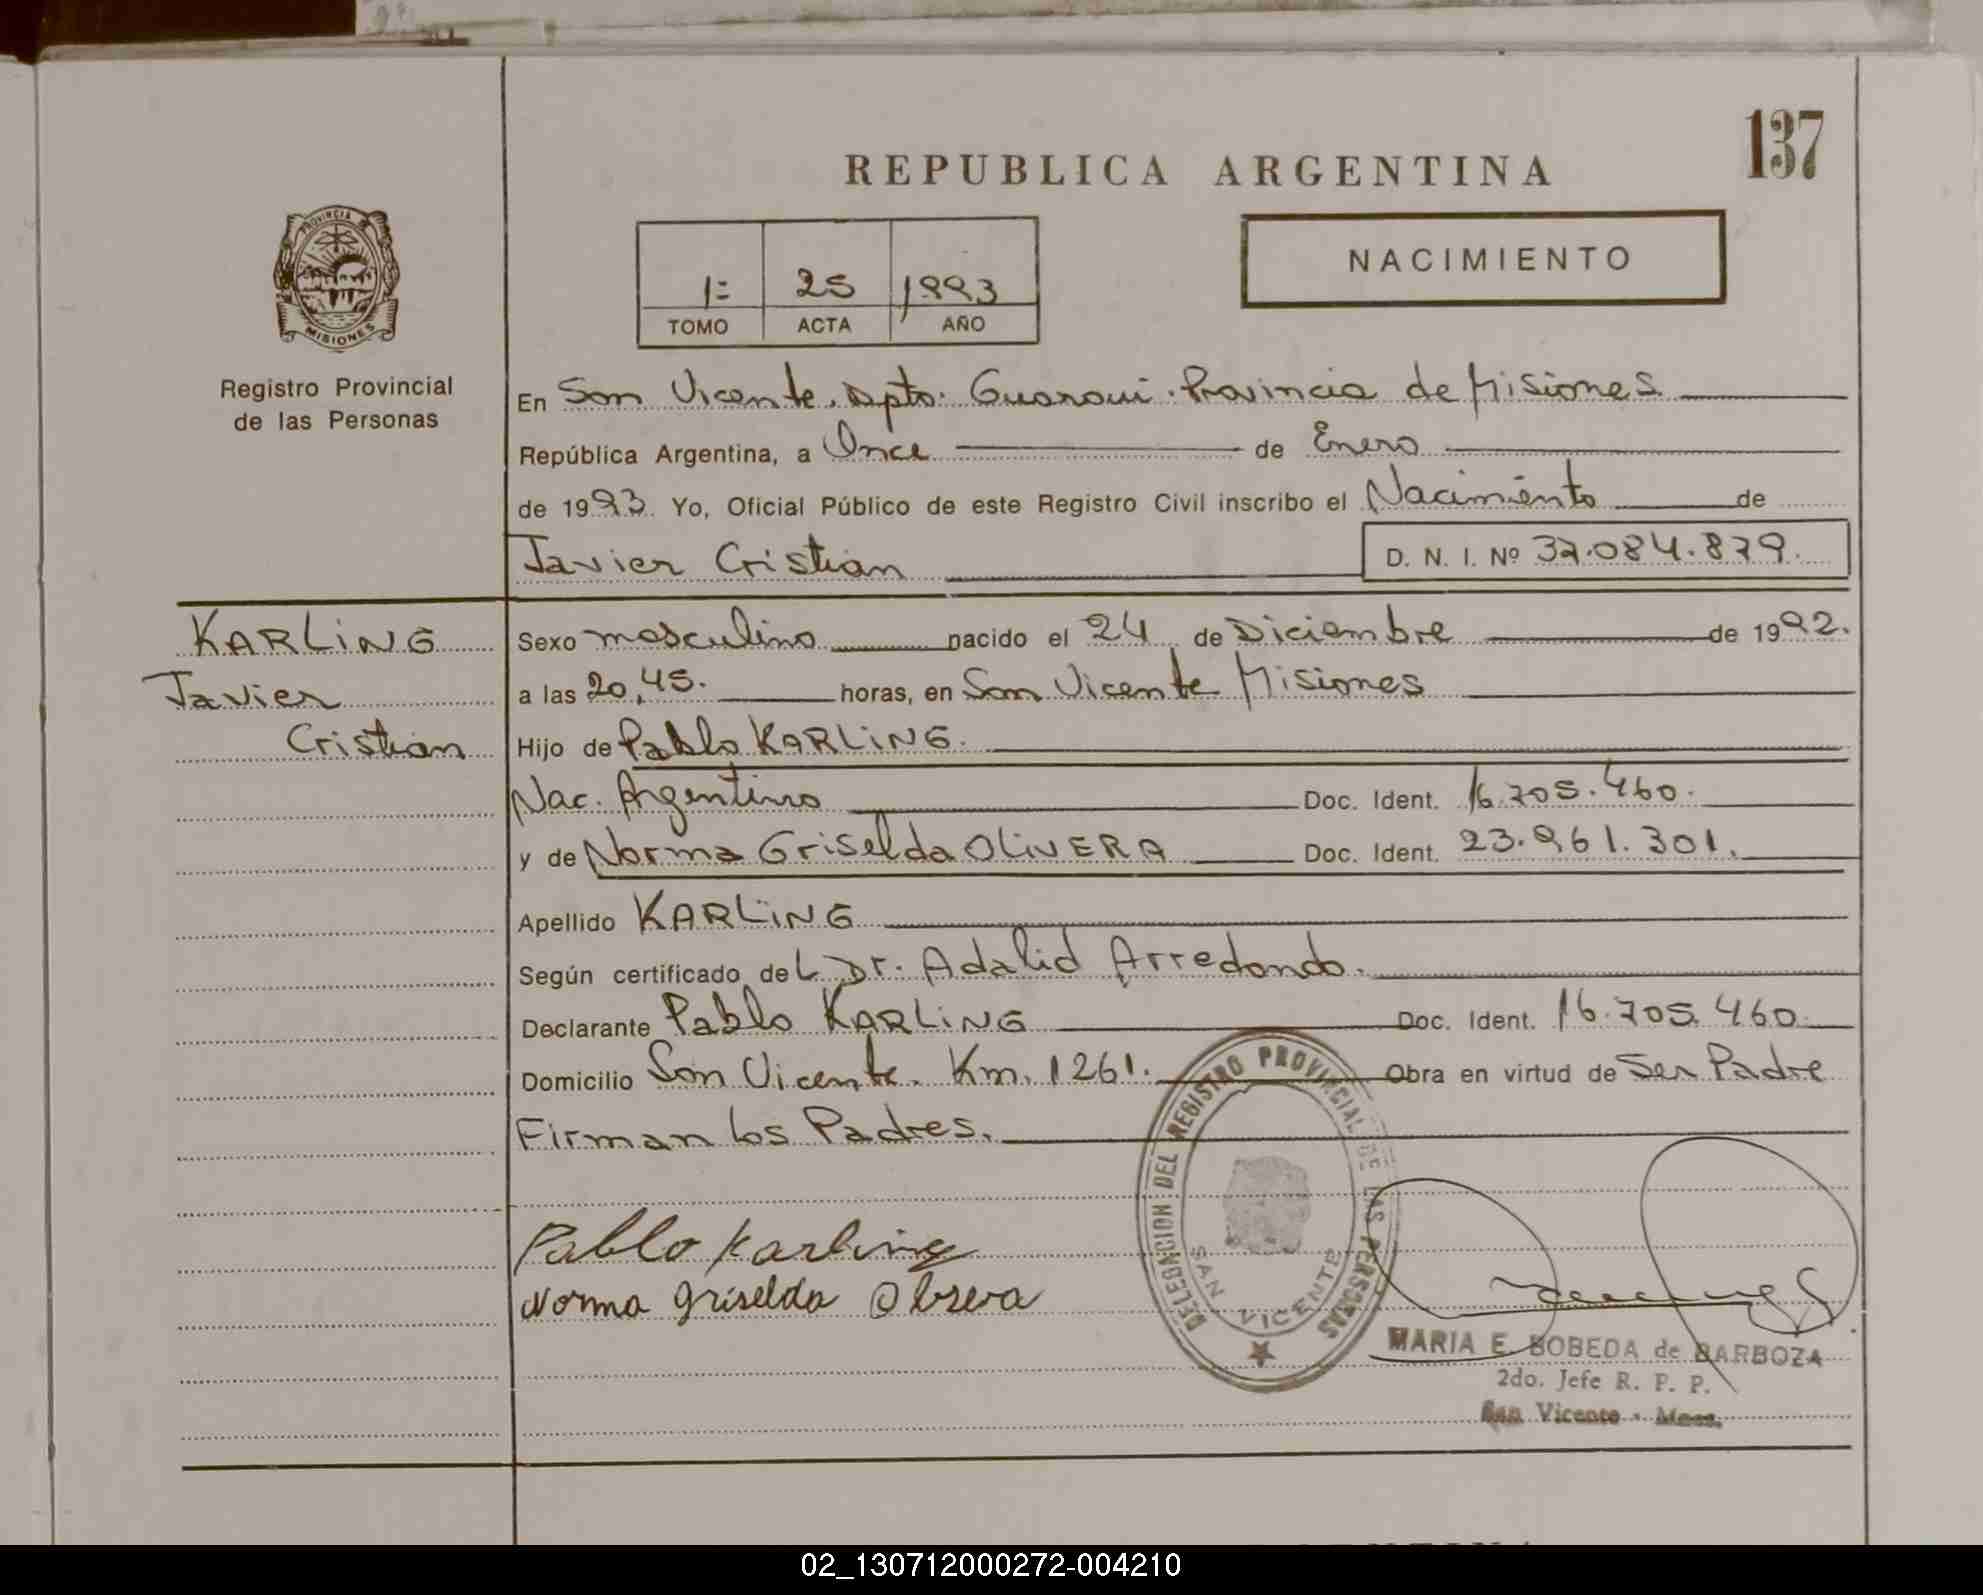 137
REPUBLICA ARGENTINA
NACIMIENTO
1= 25 1993
TOMO ACTA AÑO
PROVINCIA MISIONES
Registro Provincial
de las Personas
En San Vicente. Dpto. Guarani. Provincia de Misiones
República Argentina, a Once de Enero
de 1993. Yo, Oficial Público de este Registro Civil inscribo el Nacimiento de
Javier Cristian D. N. I. Nº 37.084.879.
KARLiNG
Javier
Cristian
Sexo masculino nacido el 24 de Diciembre de 1992.
a las 20,45. horas, en San Vicente Misiones
Hijo de Pablo KARLiNG.
Nac. Argentino Doc. Ident. 16.705.460.
y de Norma Griselda OLiVERA Doc. Ident. 23.961.301.
Apellido KARLiNG
Según certificado del Dr. Adalid Arredondo.
Declarante Pablo KARLiNG Doc. Ident. 16.705.460.
Domicilio San Vicente. Km. 1261. Obra en virtud de Ser Padre
Firman los Padres.
DELEGACION DEL REGISTRO PROVINCIAL DE LAS PERSONAS
SAN VICENTE
Pablo Karling
Norma Griselda
MARIA E. BOBEDA de BARBOZA
2do. Jefe R. P. P.
San Vicente - Mnes.
02_130712000272-004210